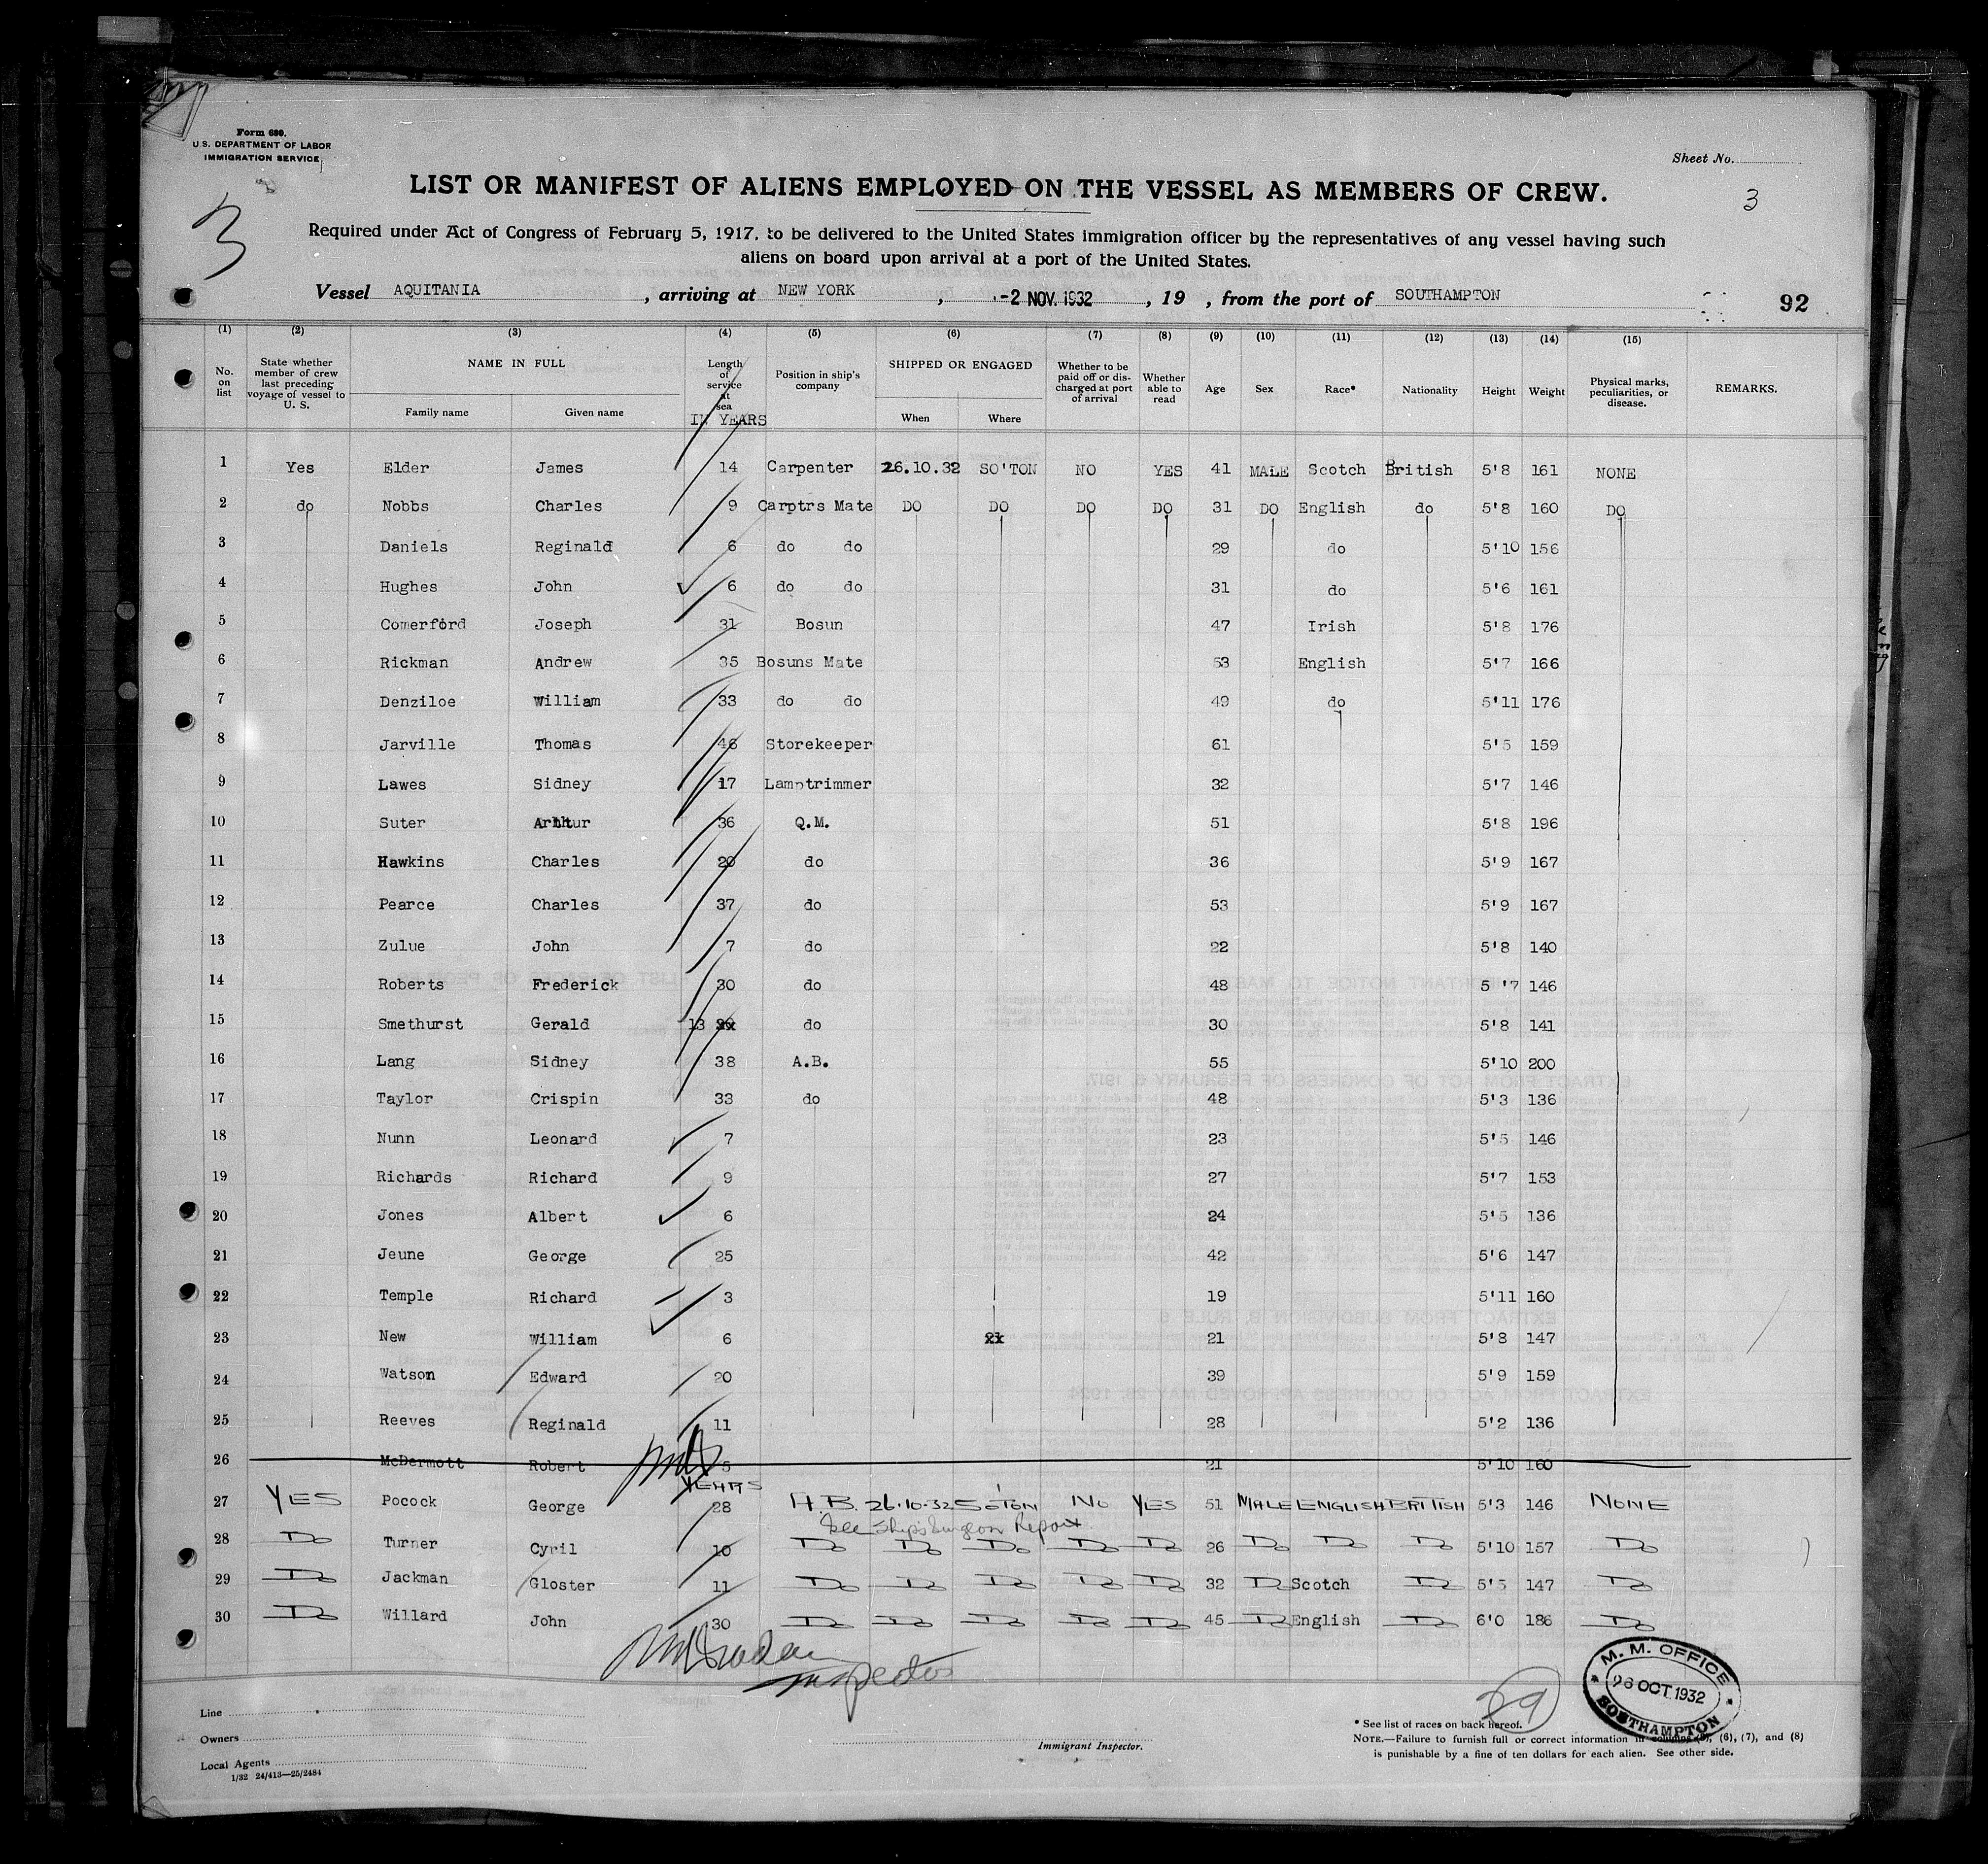 Form 680.
U.S. DEPARTMENT OF LABOR
IMMIGRATION SERVICE
Sheet No.
3
3
LIST OR MANIFEST OF ALIENS EMPLOYED ON THE VESSEL AS MEMBERS OF CREW.
Required under Act of Congress of February 5, 1917, to be delivered to the United States immigration officer by the representatives of any vessel having such
aliens on board upon arrival at a port of the United States.
Vessel AQUITANIA, arriving at NEW YORK, -2 NOV. 1932, 19 , from the port of SOUTHAMPTON
92
(1) (2) (3) (4) (5) (6) (7) (8) (9) (10) (11) (12) (13) (14) (15)
No. on list State whether member of crew last preceding voyage of vessel to U. S. NAME IN FULL Family name Given name Length of service at sea IN YEARS Position in ship's company SHIPPED OR ENGAGED When Where Whether to be paid off or discharged at port of arrival Whether able to read Age Sex Race* Nationality Height Weight Physical marks, peculiarities, or disease. REMARKS.
1 Yes Elder James 14 Carpenter 26.10.32 SO'TON NO YES 41 MALE Scotch British 5'8 161 NONE
2 do Nobbs Charles 9 Carptrs Mate DO DO DO DO 31 DO English do 5'8 160 DO
3 Daniels Reginald 6 do do 29 do 5'10 156
4 Hughes John 6 do do 31 do 5'6 161
5 Comerford Joseph 31 Bosun 47 Irish 5'8 176
6 Rickman Andrew 35 Bosuns Mate 53 English 5'7 166
7 Denziloe William 33 do do 49 do 5'11 176
8 Jarville Thomas 46 Storekeeper 61 5'5 159
9 Lawes Sidney 17 Lamptrimmer 32 5'7 146
10 Suter Arthur 36 Q.M. 51 5'8 196
11 Hawkins Charles 20 do 36 5'9 167
12 Pearce Charles 37 do 53 5'9 167
13 Zulue John 7 do 22 5'8 140
14 Roberts Frederick 30 do 48 5'7 146
15 Smethurst Gerald 13 do 30 5'8 141
16 Lang Sidney 38 A.B. 55 5'10 200
17 Taylor Crispin 33 do 48 5'3 136
18 Nunn Leonard 7 23 5'5 146
19 Richards Richard 9 27 5'7 153
20 Jones Albert 6 24 5'5 136
21 Jeune George 25 42 5'6 147
22 Temple Richard 3 19 5'11 160
23 New William 6 21 5'8 147
24 Watson Edward 20 39 5'9 159
25 Reeves Reginald 11 28 5'2 136
26 McDermott Robert 5 21 5'10 160
YEARS
27 YES Pocock George 28 A.B. 26.10.32 SOTON NO YES 51 MALE ENGLISH BRITISH 5'3 146 NONE
See Ship's Surgeon Report
28 Do Turner Cyril 10 Do Do Do Do Do 26 Do Do Do 5'10 157 Do
29 Do Jackman Gloster 11 Do Do Do Do Do 32 Do Scotch Do 5'5 147 Do
30 Do Willard John 30 Do Do Do Do Do 45 Do English Do 6'0 186 Do
Inspector
29
M. M. OFFICE
26 OCT 1932
SOUTHAMPTON
Line
Owners
Local Agents
1/32 24/413—25/2484
Immigrant Inspector.
* See list of races on back hereof.
NOTE.—Failure to furnish full or correct information in columns (5), (6), (7), and (8)
is punishable by a fine of ten dollars for each alien. See other side.